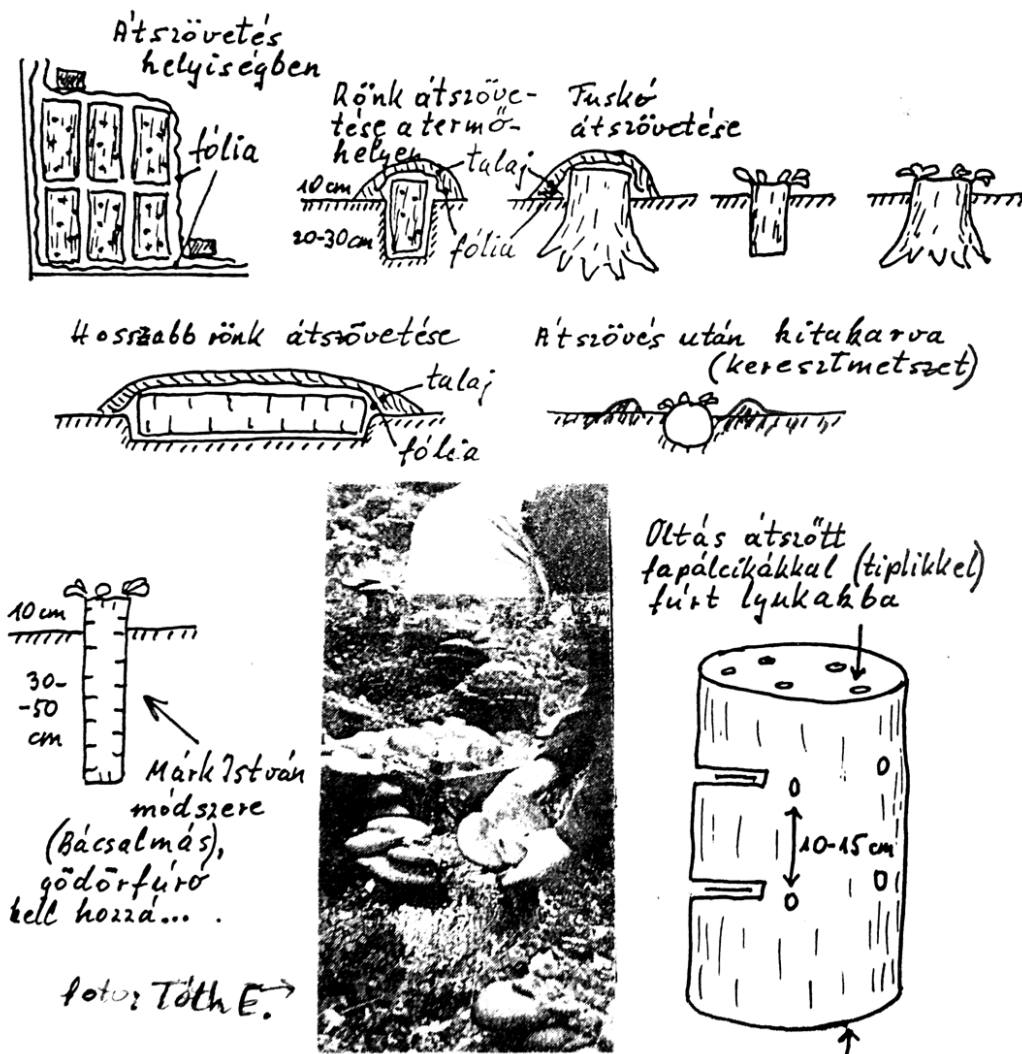 Átszövetés
helyiségben
fólia
Rönk átszöve-
tése a termő-
helyen
talaj
10 cm
20-30 cm
fólia
Tuskó
átszövetése
Hosszabb rönk átszövetése
talaj
fólia
Átszövés után kitakarva
(keresztmetszet)
10 cm
30-
-50
cm
Márk István
módszere
(Bácsalmás),
gödörfúró
kell hozzá...
fotó: Tóth E.
Oltás átszőtt
fapálcikákkal (tiplikkel)
fúrt lyukakba
10-15 cm